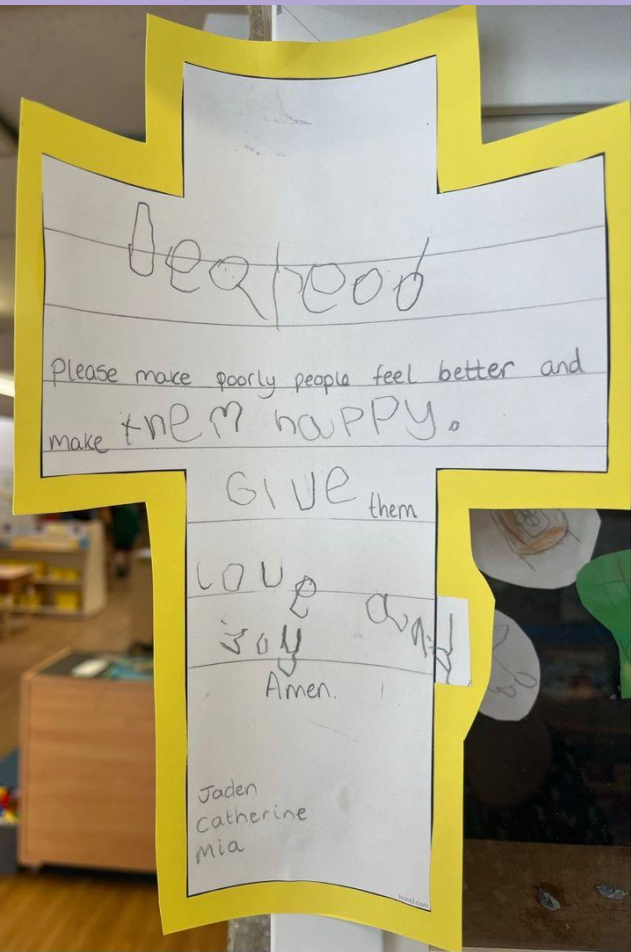 Dear God
Please make poorly people feel better and
make them happy.
Give them
love and
joy
Amen.
Jaden
Catherine
Mia